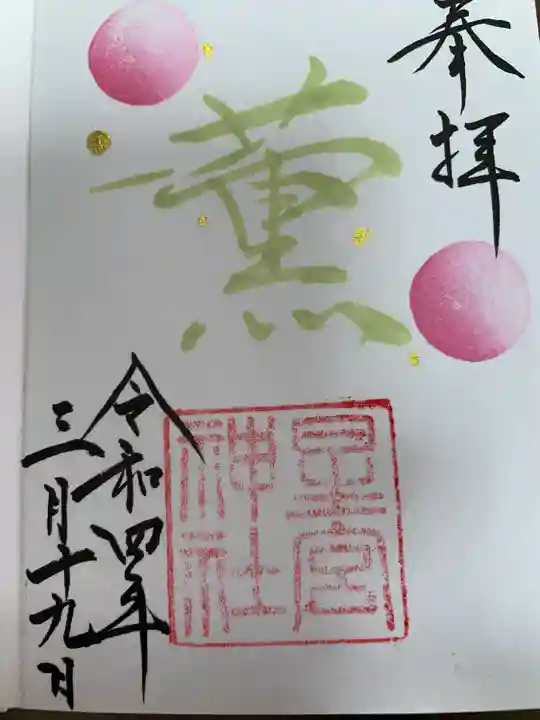 奉拝
薫
星宮神社
令和四年
三月十九日